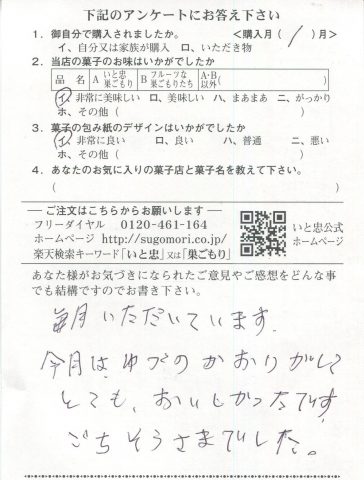 下記のアンケートにお答え下さい
1. 御自分で購入されましたか。 <購入月( 1 )月>
イ、自分又は家族が購入 ロ、いただき物
2. 当店の菓子のお味はいかがでしたか
品 名 A いと忠巣ごもり B フルーツな巣ごもりたち A・B以外( )
イ、非常に美味しい ロ、美味しい ハ、まあまあ ニ、がっかり
ホ、その他 ( )
3. 菓子の包み紙のデザインはいかがでしたか
イ、非常に良い ロ、良い ハ、普通 ニ、悪い
ホ、その他 ( )
4. あなたのお気に入りの菓子店と菓子名を教えて下さい。
( )
― ご注文はこちらからお願いします ―
フリーダイヤル 0120-461-164
ホームページ http://sugomori.co.jp/
楽天検索キーワード「いと忠」又は「巣ごもり」
いと忠公式
ホームページ
あなた様がお気づきになられたご意見やご感想をどんな事
でも結構ですのでお書き下さい。
毎月いただいています。
今月は、ゆづのかおりがして
とても、おいしかったです。
ごちそうさまでした。